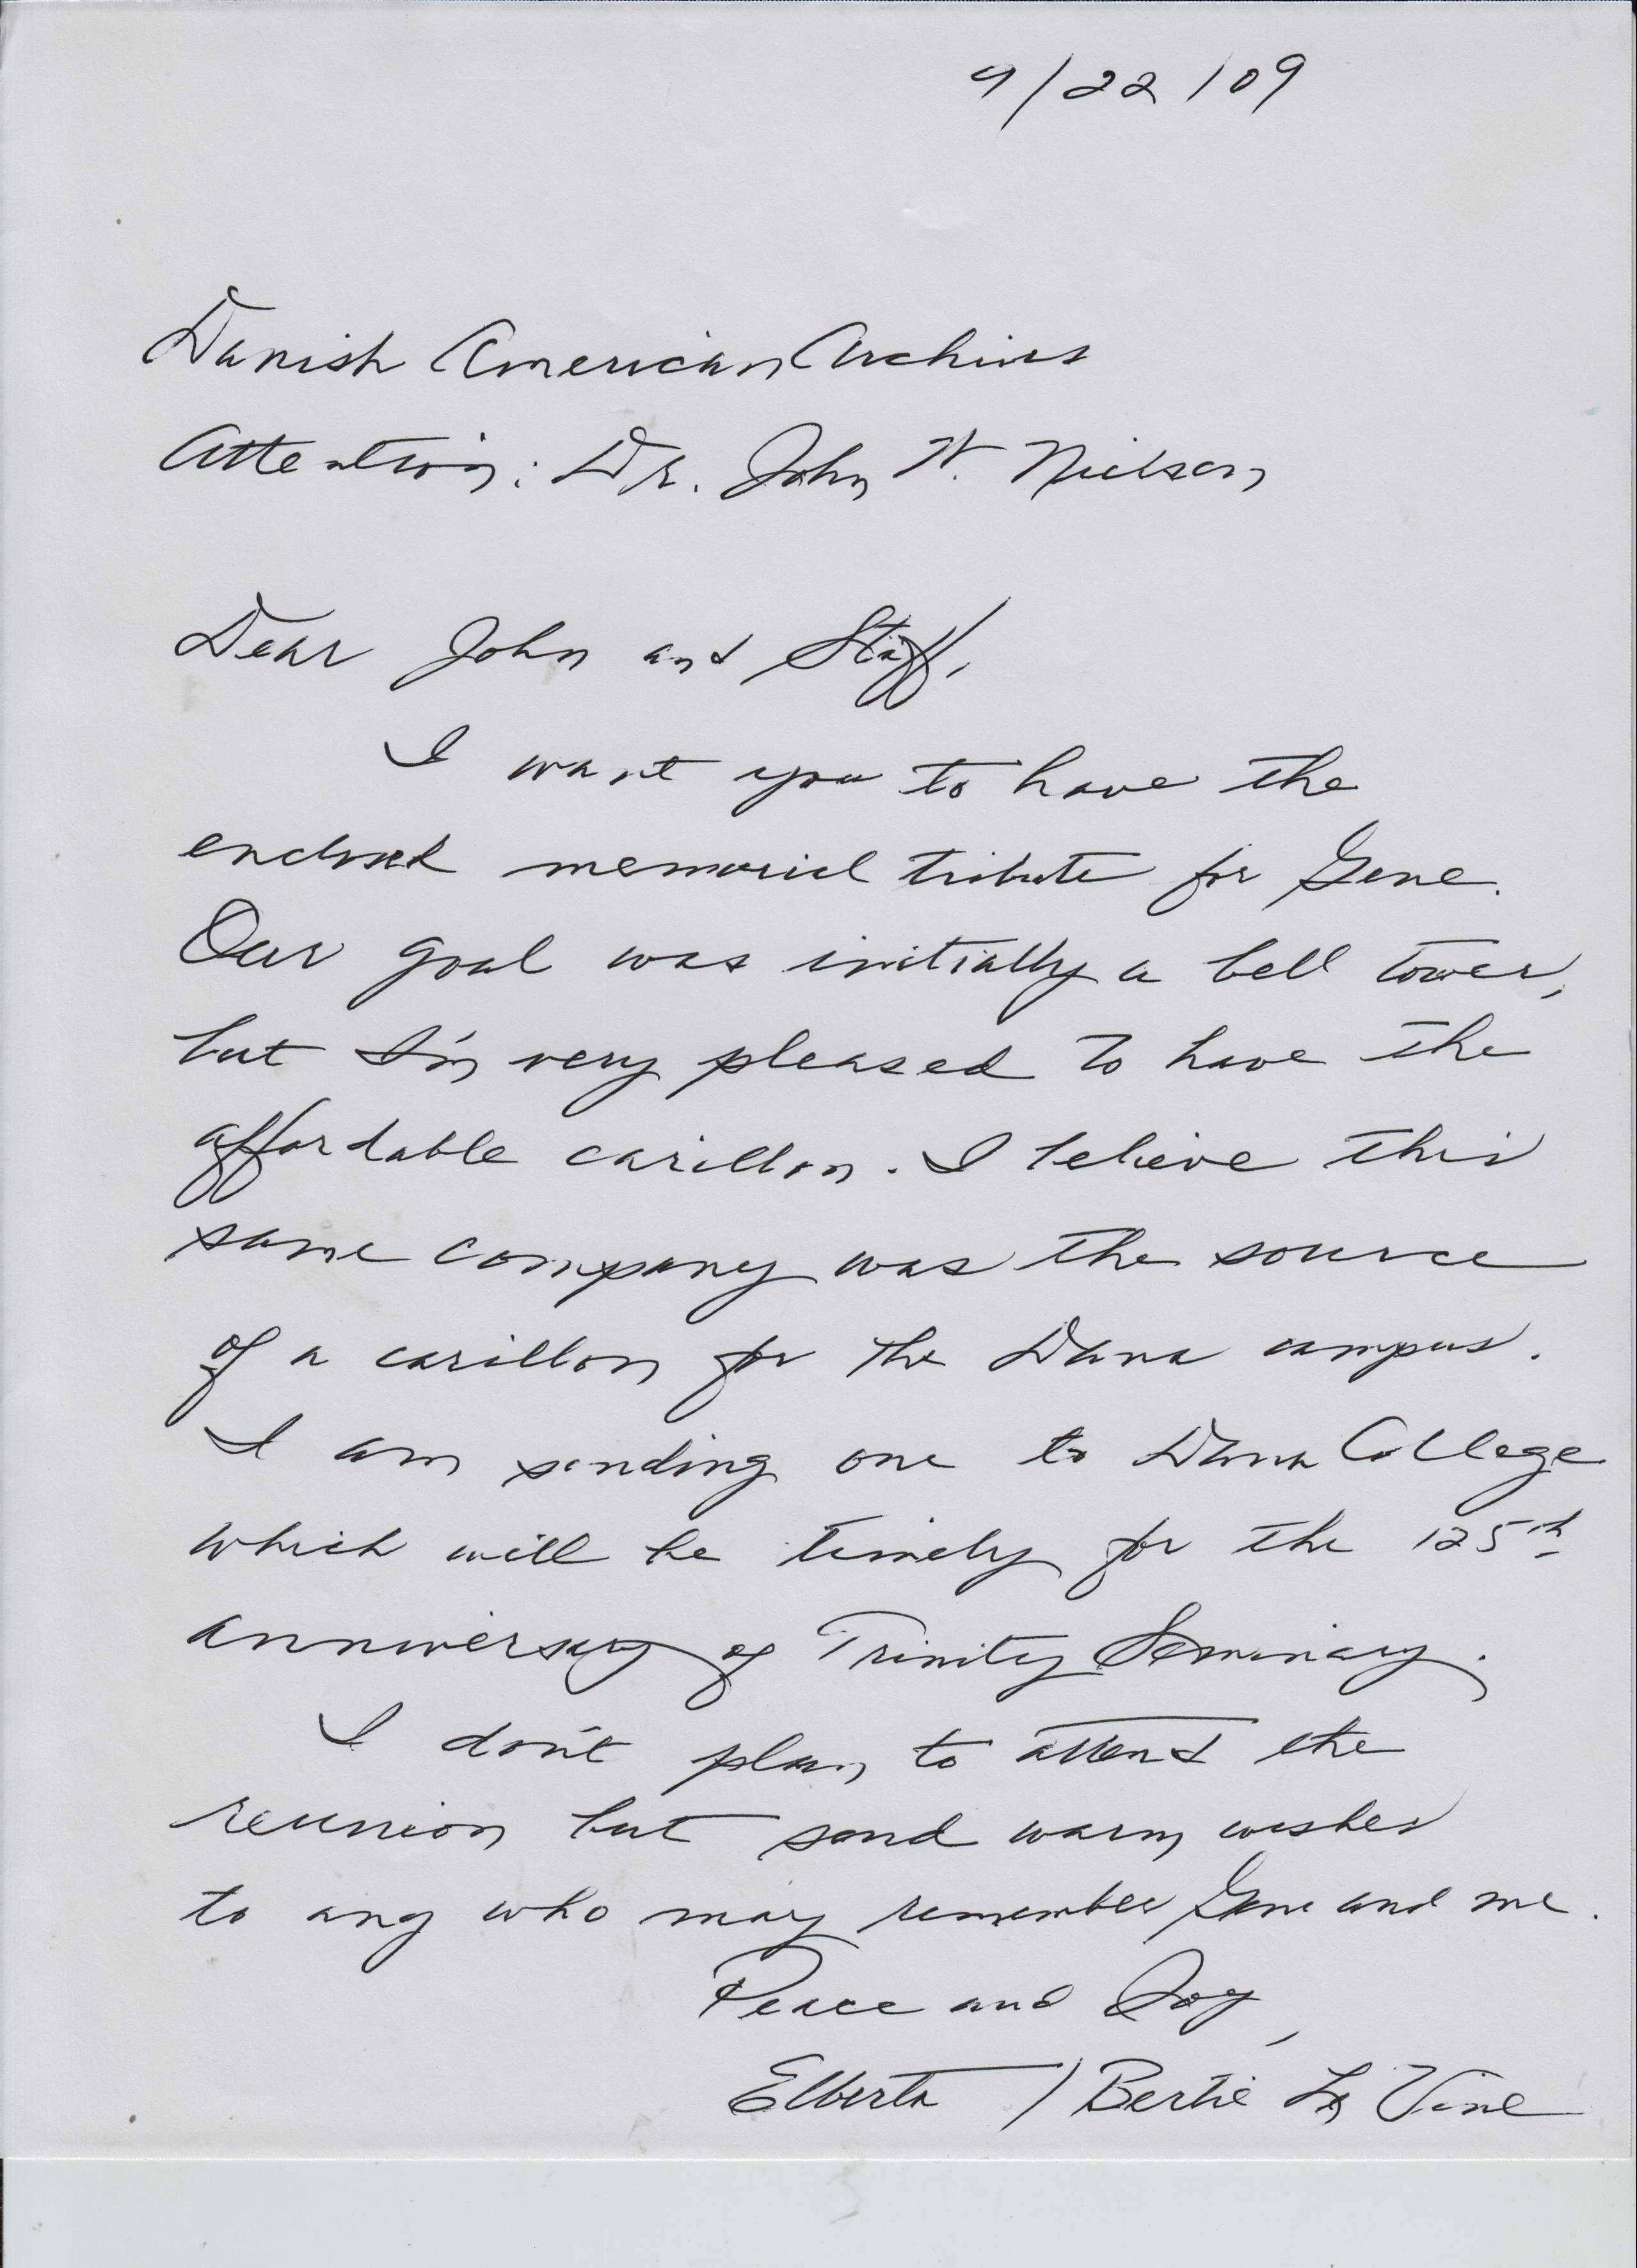 9/22/09
Danish American Archives
Attention: Dr. John W. Nielsen
Dear John and Staff,
I want you to have the
enclosed memorial tribute for Gene.
Our goal was initially a bell tower,
but I'm very pleased to have the
affordable carillon. I believe this
same company was the source
of a carillon for the Dana campus.
I am sending one to Dana College
which will be timely for the 125th
anniversary of Trinity Seminary.
I don't plan to attend the
reunion but send warm wishes
to any who may remember Gene and me.
Peace and Joy,
Elberta / Bertie La Vine